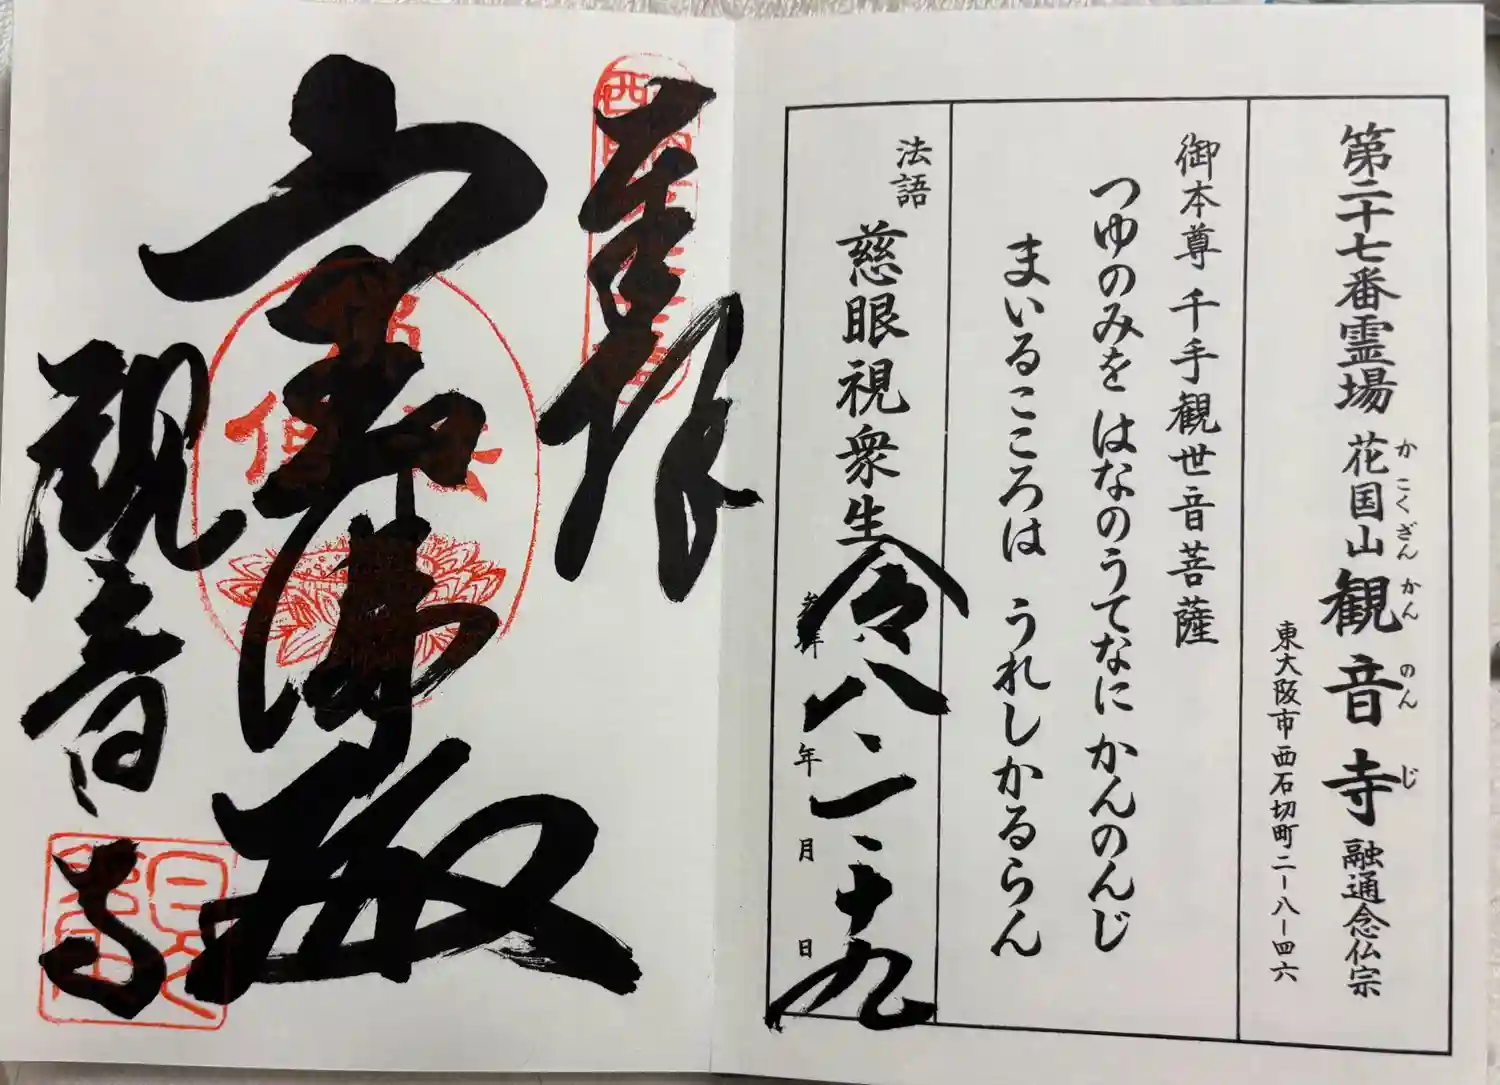 第二十七番霊場 花国山 観音寺 融通念仏宗
かこくざん かんのんじ
東大阪市西石切町二ー八ー四六
御本尊 千手観世音菩薩
つゆのみを はなのうてなに かんのんじ
まいるこころは うれしかるらん
法語 慈眼視衆生
令八、一、十九
参拝 年 月 日
奉拝
観音寺